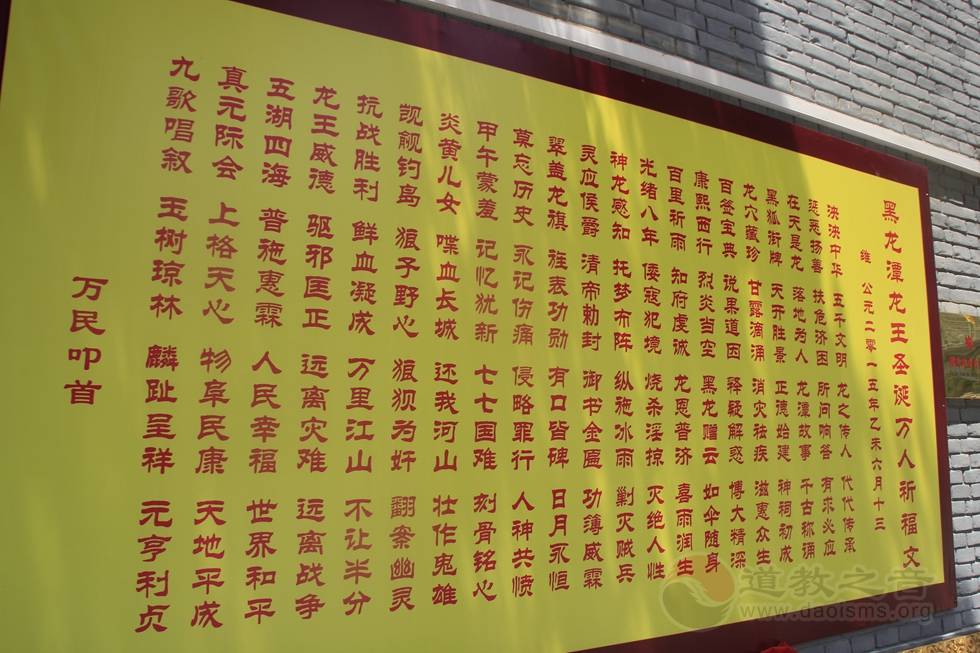 黑龙潭龙王圣诞万人祈福文
维 公元二零一五年乙未六月十三
泱泱中华 五千文明 龙之传人 代代传承
惩恶扬善 扶危济困 所问响答 有求必应
在天是龙 落地为人 龙潭故事 千古称诵
黑狐街牌 天开胜景 正德始建 神祠初成
龙穴藏珍 甘露滴涌 消灾祛疾 滋惠众生
百签宝典 说果道因 释疑解惑 博大精深
康熙西行 烈炎当空 黑龙赠云 如伞随身
百里祈雨 知府虔诚 龙恩普济 喜雨润生
光绪八年 倭寇犯境 烧杀淫掠 灭绝人性
神龙感知 托梦布阵 纵施冰雨 剿灭贼兵
灵应侯爵 清帝勅封 御书金匾 功薄威霖
翠盖龙旗 旌表功勋 有口皆碑 日月永恒
莫忘历史 永记伤痛 侵略罪行 人神共愤
甲午蒙羞 记忆犹新 七七国难 刻骨铭心
炎黄儿女 喋血长城 还我河山 壮作鬼雄
觊觎钓岛 狼子野心 狼狈为奸 翻案幽灵
抗战胜利 鲜血凝成 万里江山 不让半分
龙王威德 驱邪匡正 远离灾难 远离战争
五湖四海 普施惠霖 人民幸福 世界和平
真元际会 上格天心 物阜民康 天地平成
九歌唱叙 玉树琼林 麟趾呈祥 元亨利贞
万民叩首
道教之音
www.daoisms.org